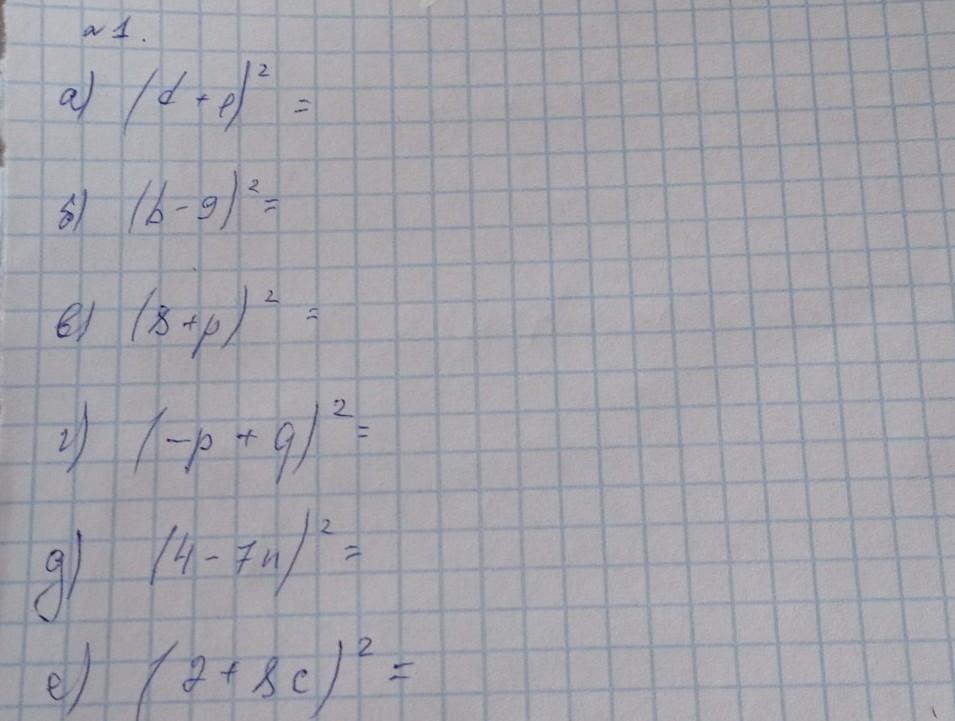 № 1.
а) (d + e)² =
б) (b - 9)² =
в) (8 + p)² =
г) (-p + q)² =
д) (4 - 7n)² =
е) (2 + 8c)² =